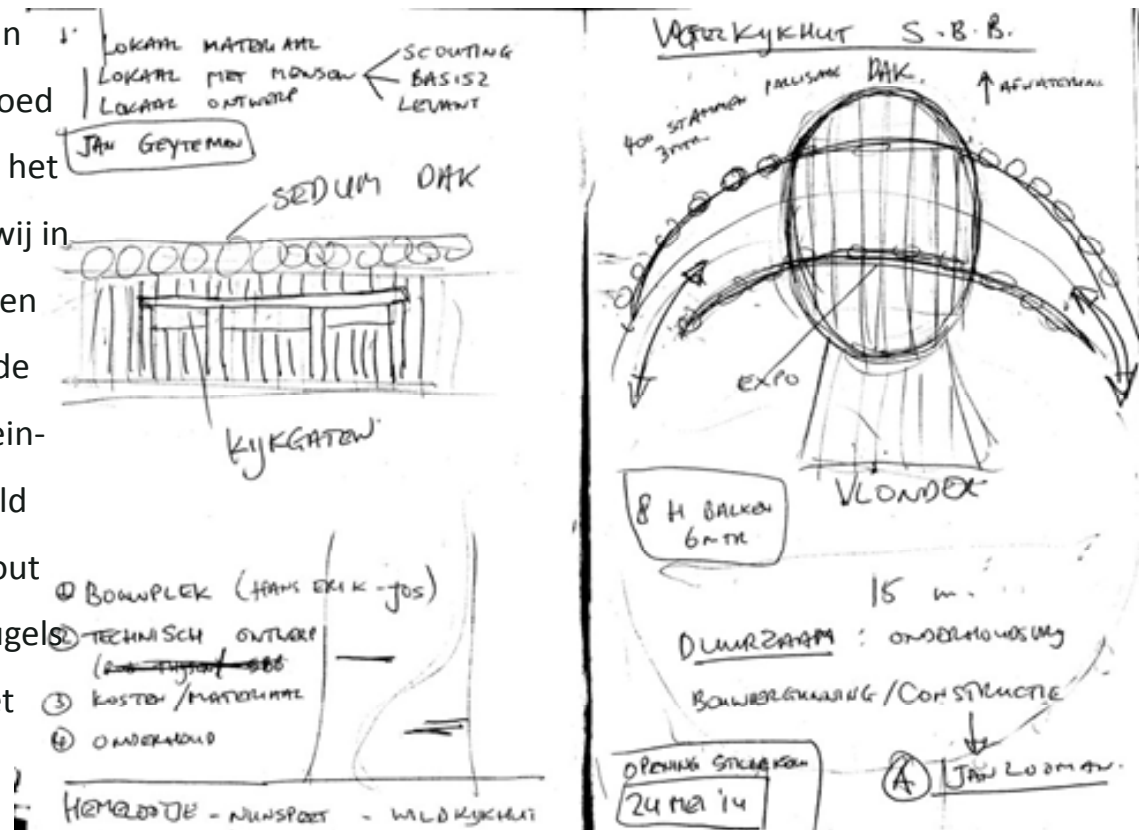 n
oed
het
wij in
en
de
ein-
ld
out
ugels
et
LOKAAL MATERIAAL
LOKAAL MET MENSEN
LOKAAL ONTWERP
SCOUTING
BASISZ
LEVANT
JAN GEYTEMAN
SEDUM DAK
KIJKGATEN
① BOUWPLEK (HANS ERIK - JOS)
② TECHNISCH ONTWERP
③ KOSTEN / MATERIAAL
④ ONDERHOUD
- NUNSPEET - WILDKIJKHUT
KIJKHUT S.B.B.
400 STAMMEN PALLISADE
3MTR
DAK.
↑ AFWATERING
EXPO
VLONDER
8 H BALKEN
6 MTR
15 m.
DUURZAAM : ONDERHOUDSVRIJ
BOUWVERGUNNING / CONSTRUCTIE
OPENING
24 MEI '14
A JAN LOOMAN.